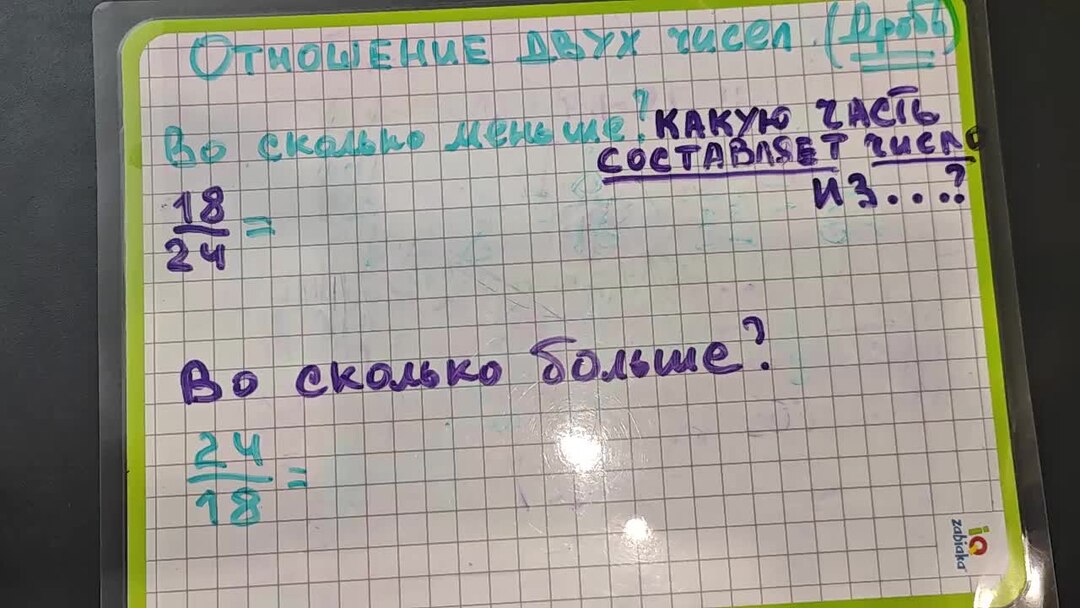 Отношение двух чисел (Дробь)
Во сколько меньше?
Какую часть
составляет число
из...?
18
24
=
Во сколько больше?
24
18
=
iQ
zabiaka